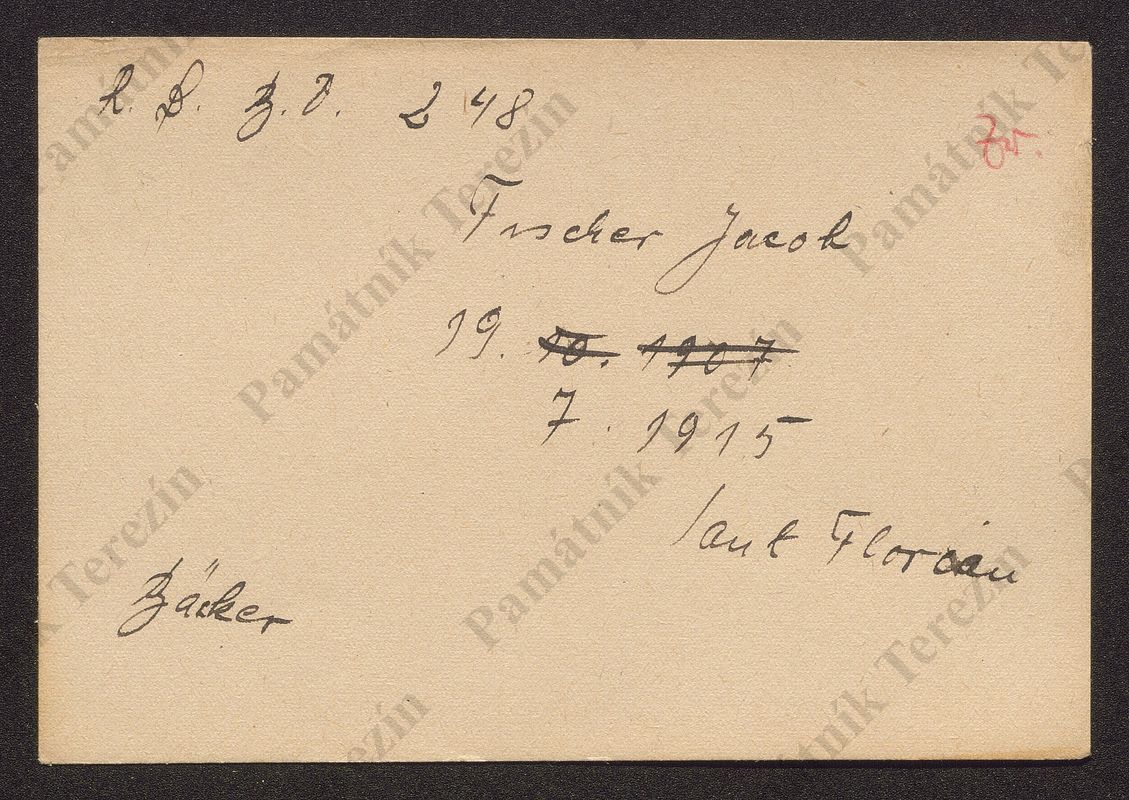 R. D. B. V. 248
Fischer Jacob
19. 10. 1907
7. 1915
Sant Florian
Bäcker
Památník Terezín